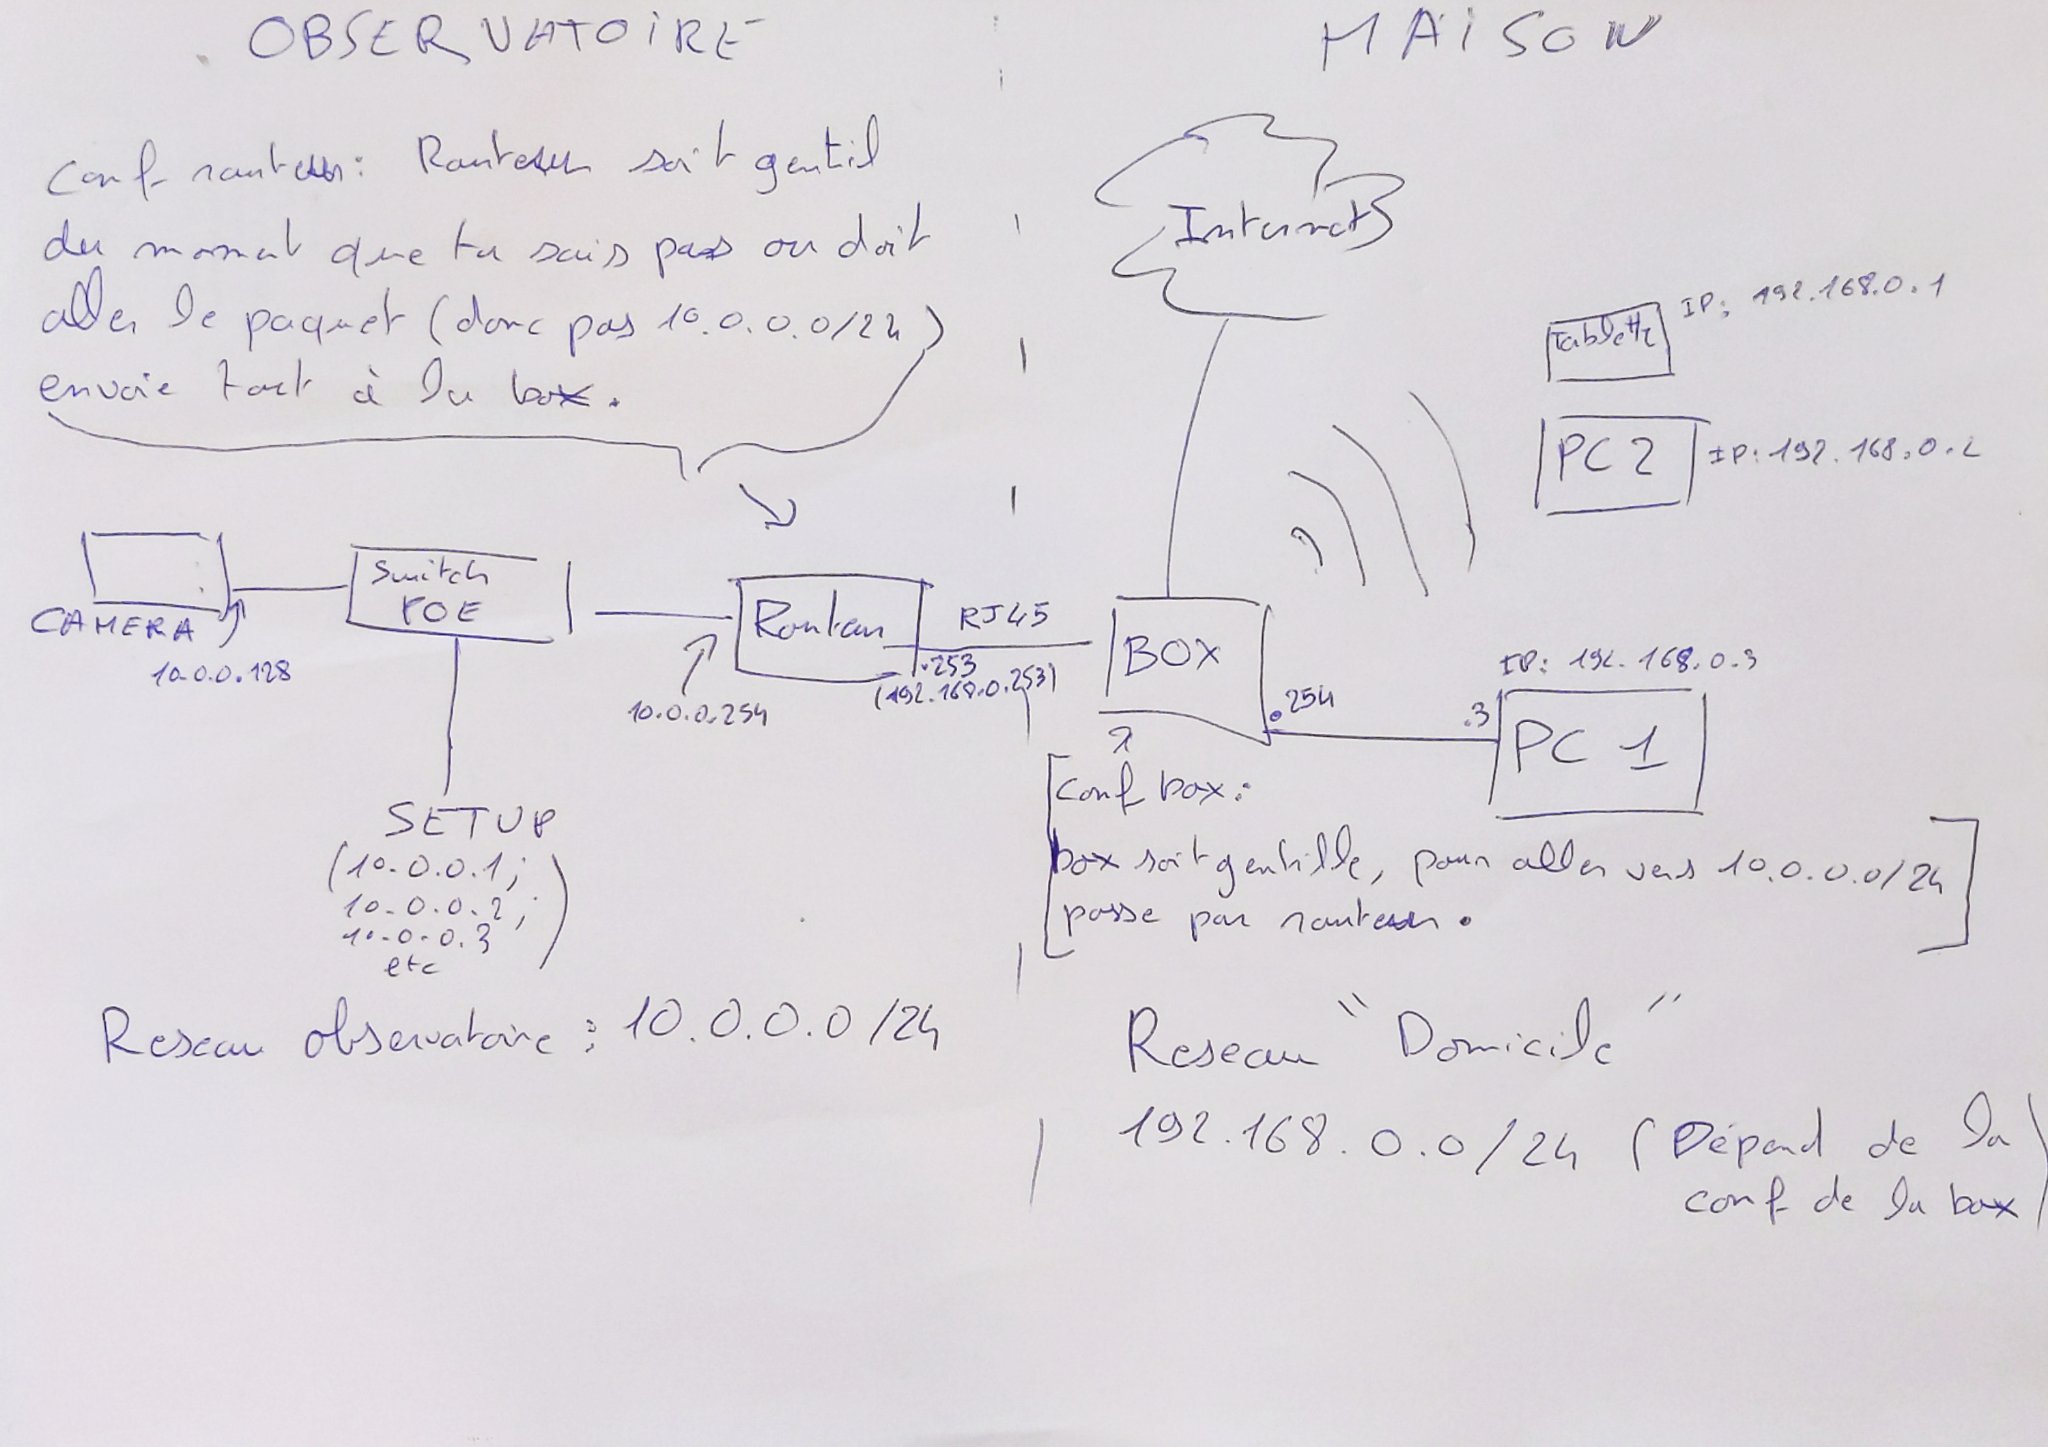 OBSERVATOIRE
MAiSON
Conf routeur: Routeur soit gentil
du moment que tu sais pas ou doit
aller le paquet (donc pas 10.0.0.0/24)
envoie tout à la box.
Internet
Tablette
IP: 192.168.0.1
PC 2
IP: 192.168.0.2
CAMERA
10.0.0.128
Switch
POE
10.0.0.254
Routeur
RJ45
.253
(192.168.0.253)
BOX
.254
IP: 192.168.0.3
.3
PC 1
Conf box:
box soit gentille, pour aller vers 10.0.0.0/24
passe par routeur.
SETUP
(10.0.0.1;
10.0.0.2;
10.0.0.3
etc)
Reseau observatoire : 10.0.0.0/24
Reseau "Domicile"
192.168.0.0/24 (Dépend de la
conf de la box)